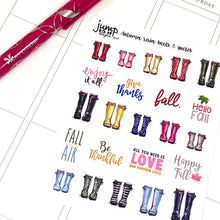 jump
Autumn Rain Boots & Quotes
enjoy
it all
Give
Thanks
fall.
Hello
Fall
FALL
AIR
Be
Thankful
ALL YOU NEED IS
LOVE
AND PUMPKIN SPICE
Happy
Fall